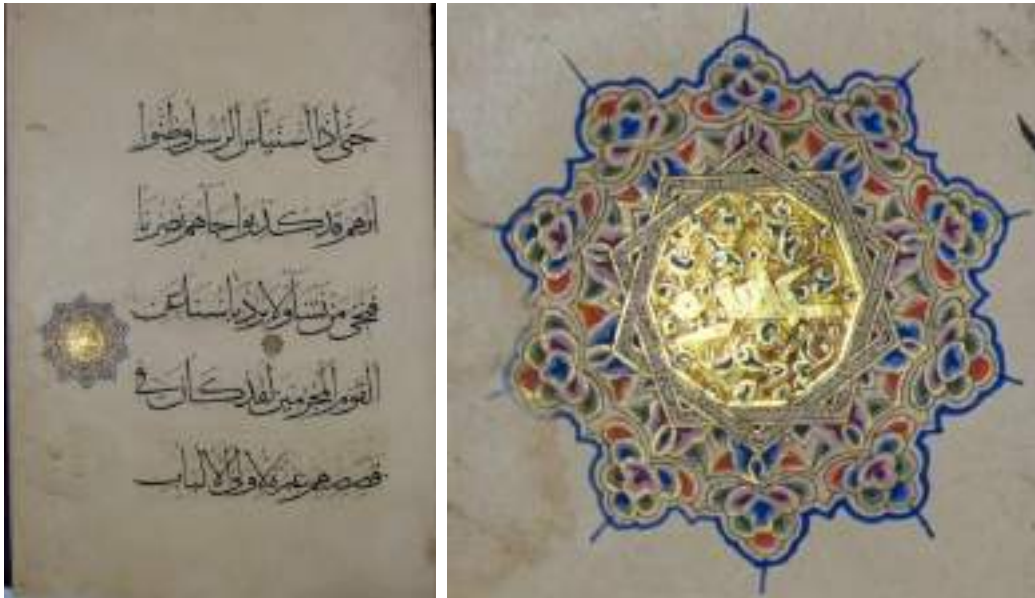 حَتَّى اذا اسْتَيْأَسَ الرُّسُلُ وَظَنُّوا
انهم قد كذبوا جاهم نصرنا
فنجى من نشا ولا يرد باسنا عن
القوم المجرمين لقد كان في
قصصهم عبرة لاولى الالباب